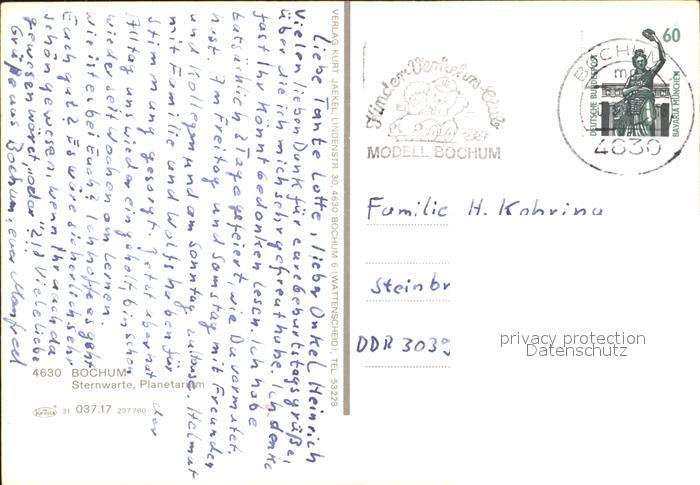 Liebe Tante Lotte, lieber Onkel Heinrich
vielen lieben Dank für eure Geburtstagsgrüße,
über die ich mich sehr gefreut habe. Ich denke
fast Ihr könnt Gedanken lesen. Ich habe
tatsächlich 2 Tage gefeiert, wie Du vermutet
hast. Im Freitag und Samstag mit Freunden
und Kollegen und am Sonntag zuhause. Helmut
mit Familie und Wolfs haben für
Stimmung gesorgt. Jetzt aber hat der
Alltag uns wieder eingeholt, bin schon
wieder seit Wochen am Lernen.
Wie ist es bei Euch? Ich hoffe es geht
Euch gut? Es wäre sicherlich sehr
schön gewesen, wenn Ihr auch da
gewesen wärt, oder? Viele liebe
Grüße aus Bochum, euer Manfred
4630 BOCHUM
Sternwarte, Planetarium
Krüger 31. 037.17 237780
VERLAG KURT JAEKEL, LINDENSTR. 30, 4630 BOCHUM 6 (WATTENSCHEID), TEL. 53223
Kinder-Verkehrs-Club
MODELL BOCHUM
BOCHUM
m
4630
60
DEUTSCHE BUNDESPOST
BAVARIA MÜNCHEN
Familie H. Kohring
Steinbr
DDR 3039
privacy protection
Datenschutz